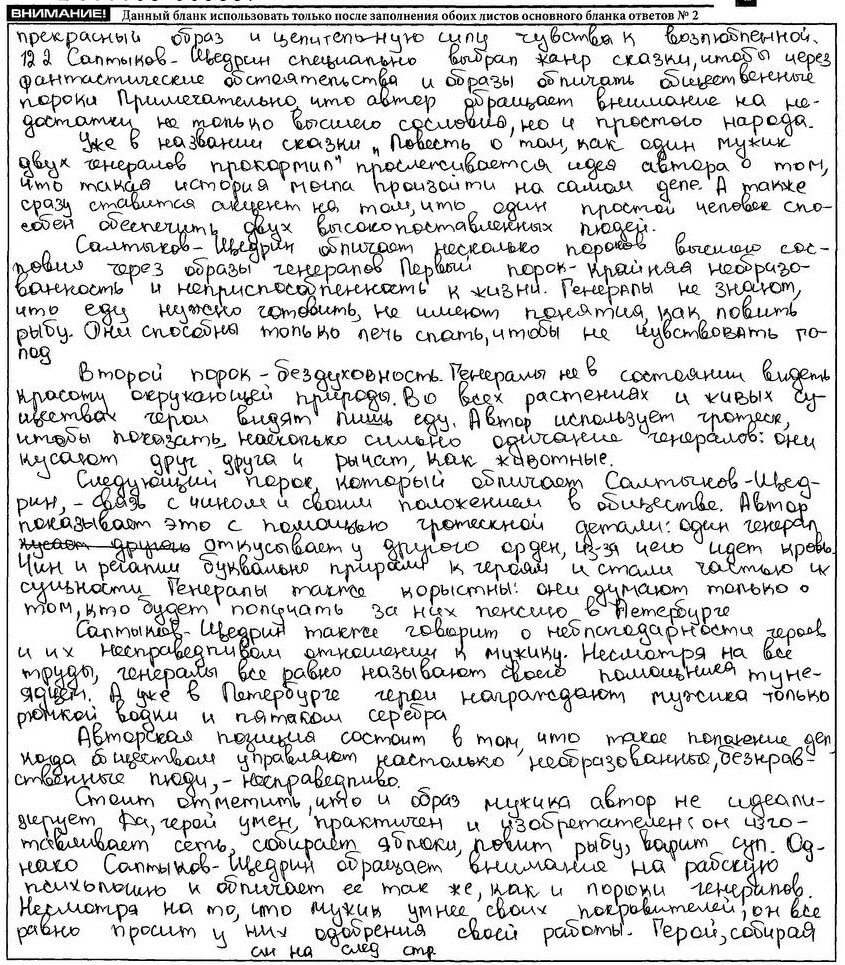 ВНИМАНИЕ! Данный бланк использовать только после заполнения обоих листов основного бланка ответов № 2
прекрасный образ и целительную силу чувства к возлюбленной.
12.2 Салтыков-Щедрин специально выбрал жанр сказки, чтобы через
фантастические обстоятельства и образы обличать общественные
пороки Примечательно, что автор обращает внимание на не-
достатки не только высшего сословия, но и простого народа.
Уже в названии сказки „Повесть о том, как один мужик
двух генералов прокормил" прослеживается идея автора о том,
что такая история могла произойти на самом деле. А также
сразу ставится акцент на том, что один простой человек спо-
собен обеспечить двух высокопоставленных людей.
Салтыков-Щедрин обличает несколько пороков высшего сос-
ловия через образы генералов Первый порок - крайняя необразо-
ванность и неприспособленность к жизни. Генералы не знают,
что еду нужно готовить, не имеют понятия, как ловить
рыбу. Они способны только лечь спать, чтобы не чувствовать го-
лод
Второй порок - бездуховность. Генералы не в состоянии видеть
красоту окружающей природы. Во всех растениях и живых су-
ществах герои видят лишь еду. Автор использует гротеск,
чтобы показать, насколько сильно одичание генералов: они
кусают друг друга и рычат, как животные.
Следующий порок, который обличает Салтыков-Щед-
рин, - связь с чином и своим положением в обществе. Автор
показывает это с помощью гротескной детали: один генерал
кусает другого откусывает у другого орден, из-за чего идет кровь.
Чин и регалии буквально приросли к героям и стали частью их
сущности Генералы также корыстны: они думают только о
том, кто будет получать за них пенсию в Петербурге
Салтыков-Щедрин также говорит о неблагодарности героев
и их несправедливом отношении к мужику. Несмотря на все
труды, генералы все равно называют своего помощника туне-
ядцем. А уже в Петербурге герои награждают мужика только
рюмкой водки и пятаком серебра
Авторская позиция состоит в том, что такое положение дел,
когда обществом управляют настолько необразованные, безнрав-
ственные люди, - несправедливо.
Стоит отметить, что и образ мужика автор не идеали-
зирует Да, герой умен, практичен и изобретателен: он изго-
тавливает сеть, собирает яблоки, ловит рыбу, варит суп. Од-
нако Салтыков-Щедрин обращает внимание на рабскую
психологию и обличает ее так же, как и пороки генералов.
Несмотря на то, что мужик умнее своих покровителей, он все
равно просит у них одобрения своей работы. Герой, собирая
см на след стр